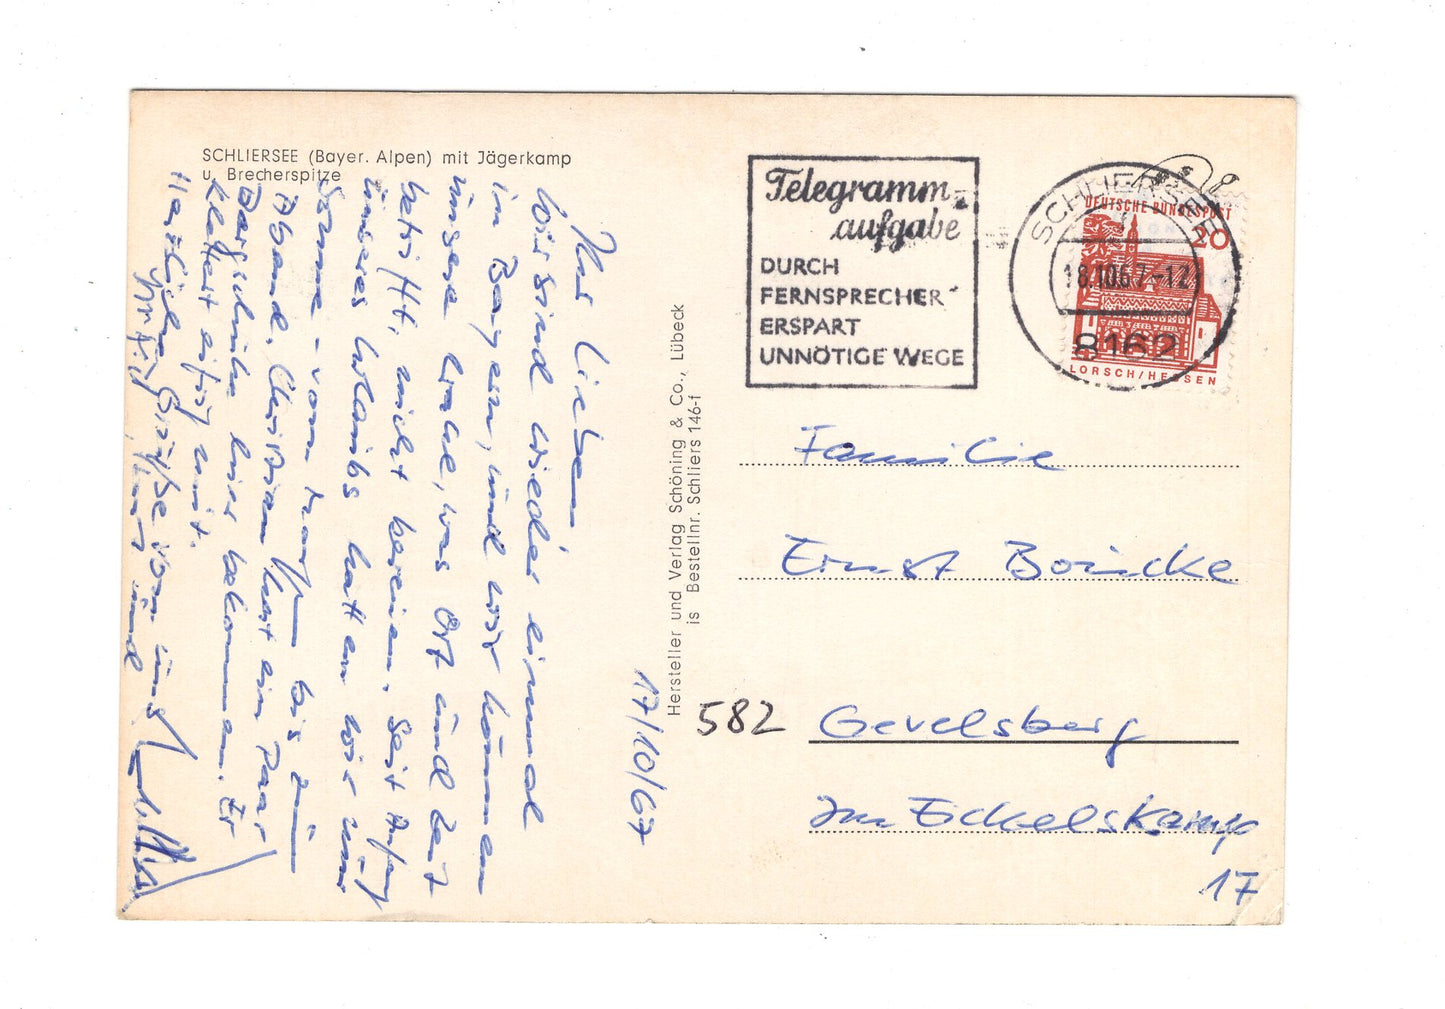 SCHLIERSEE (Bayer. Alpen) mit Jägerkamp
u. Brecherspitze
17/10/67
Ihr Lieben
Wir sind wieder einmal
in Bayern, und wir können
unsere Wahl, was Ort und Zeit
betrifft, nicht bereuen. Seit Anfang
unseres Urlaubs hatten wir nur
Sonne - vom Morgen bis zum
Abend. Christian hat ein Paar
Bergschuhe hier bekommen. Er
klettert eifrig mit.
Herzliche Grüße von uns
und
Hersteller und Verlag Schöning & Co., Lübeck
is Bestellnr. Schliers 146-f
Telegramm-
aufgabe
DURCH
FERNSPRECHER
ERSPART
UNNÖTIGE WEGE
SCHLIERSEE
18.10.67.-12
8162
DEUTSCHE BUNDESPOST
20
LORSCH/HESSEN
Familie
Ernst Boucke
582 Gevelsberg
Im Eckelskamp
17